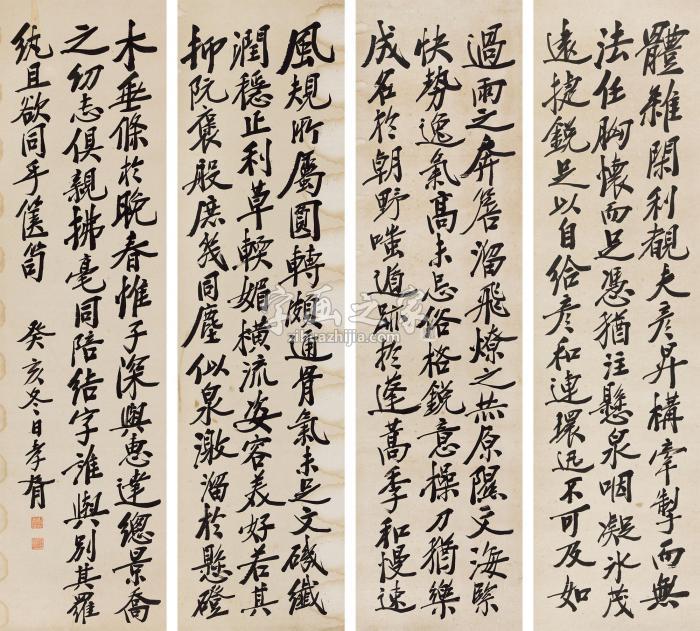 體雜閑利觀夫彥昇構牽掣而無
法任胸懷而足憑猶注懸泉咽凝冰茂
遠捷銳足以自給彥和連環迅不可及如
過雨之奔簷溜飛燎之原隰文海緊
快勢逸氣高未忘俗格銳意操刀猶樂
成名於朝野嗤遁跡於蓬蒿季和慢速
風規所屬圓轉頗通骨氣未足文磯纖
潤穩正利草輭媚橫流姿容美好若其
抑阮褒殷庶幾同塵似泉激溜於懸磴
木垂條於晚春惟子深與惠達總景喬
之幼志俱親拂毫同陪結字誰與別其羅
紈且欲同乎篋笥 癸亥冬日孝胥
字画之家
zihuazhijia.com